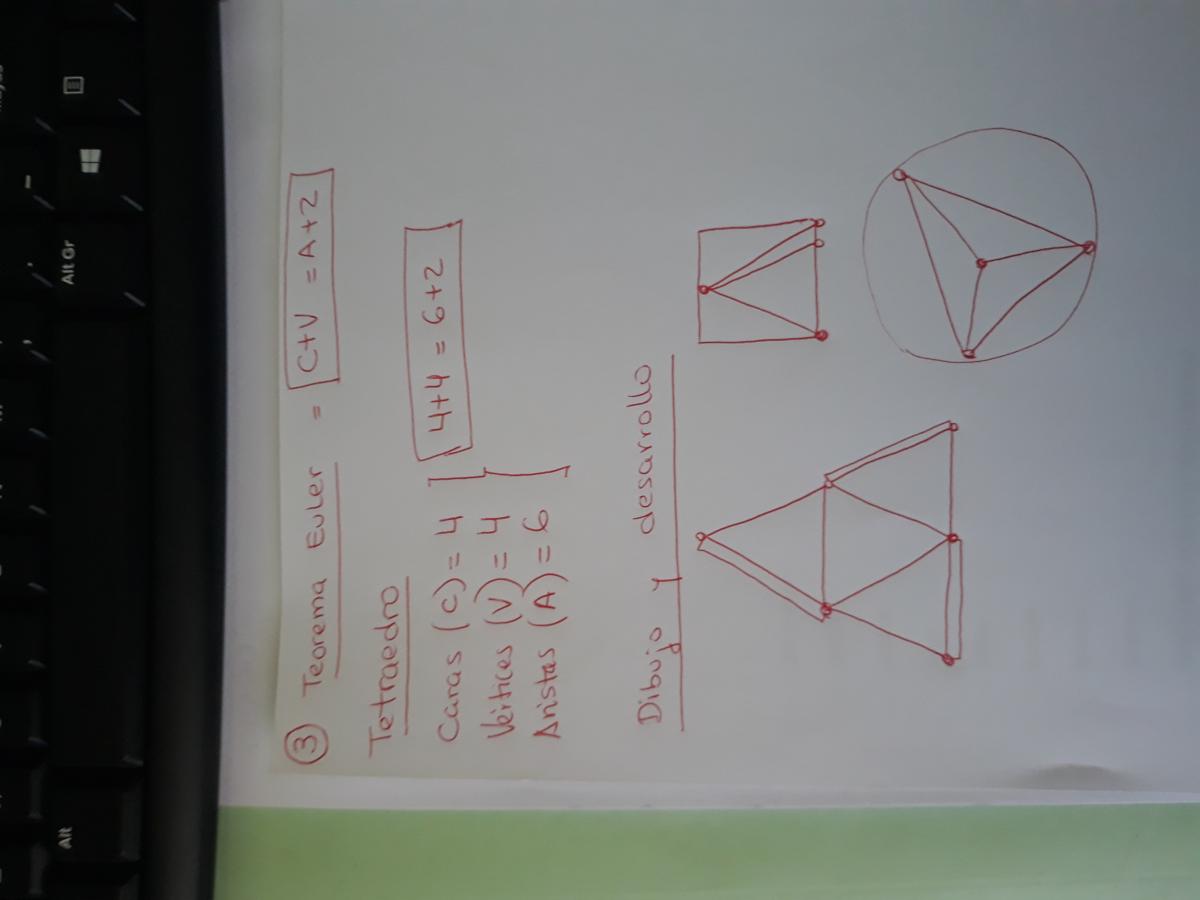 ③ Teorema Euler = C+V = A+2
Tetraedro
Caras (C) = 4
Vértices (V) = 4
Aristas (A) = 6
4+4 = 6+2
Dibujo y desarrollo
Alt
Alt Gr